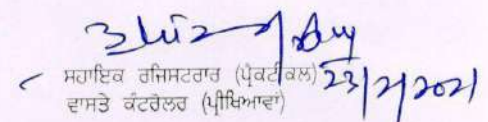 ਸਹਾਇਕ ਰਜਿਸਟਰਾਰ (ਪ੍ਰੈਕਟੀਕਲ) 23/2/2021
ਵਾਸਤੇ ਕੰਟਰੋਲਰ (ਪ੍ਰੀਖਿਆਵਾਂ)